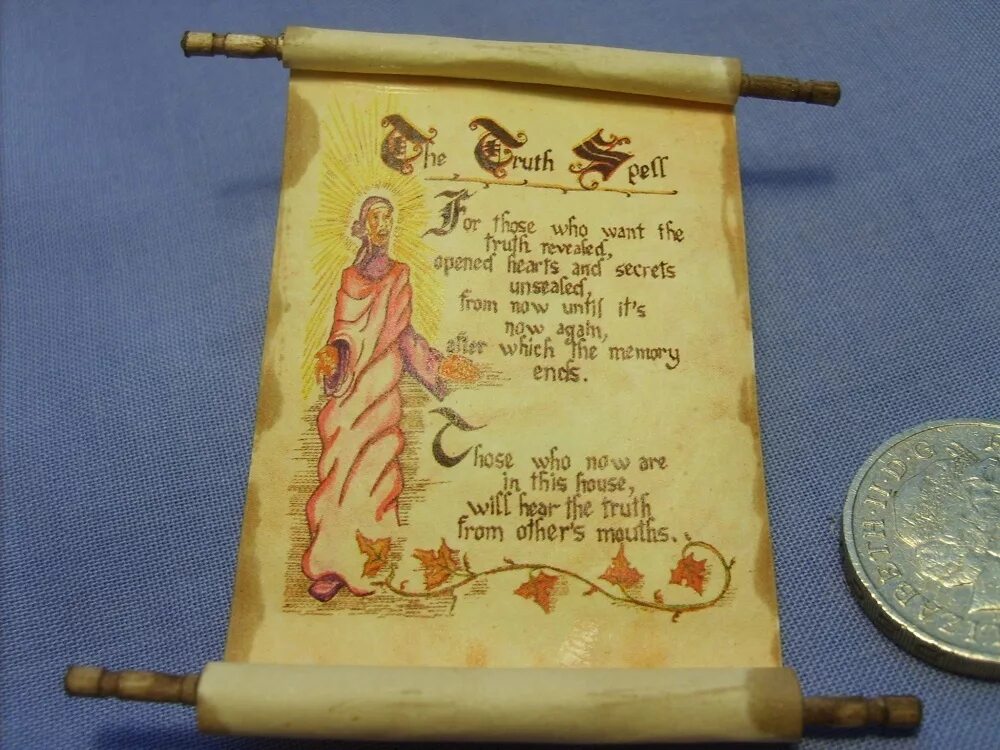 The Truth Spell
For those who want the
truth revealed,
opened hearts and secrets
unsealed,
from now until it's
now again,
after which the memory
ends.
Those who now are
in this house,
will hear the truth
from other's mouths.
ZABETH II D G